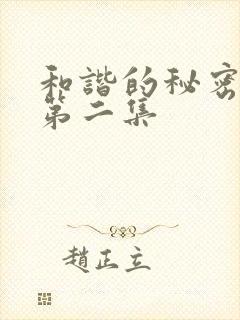 和諧的秘密
第二集
趙正立